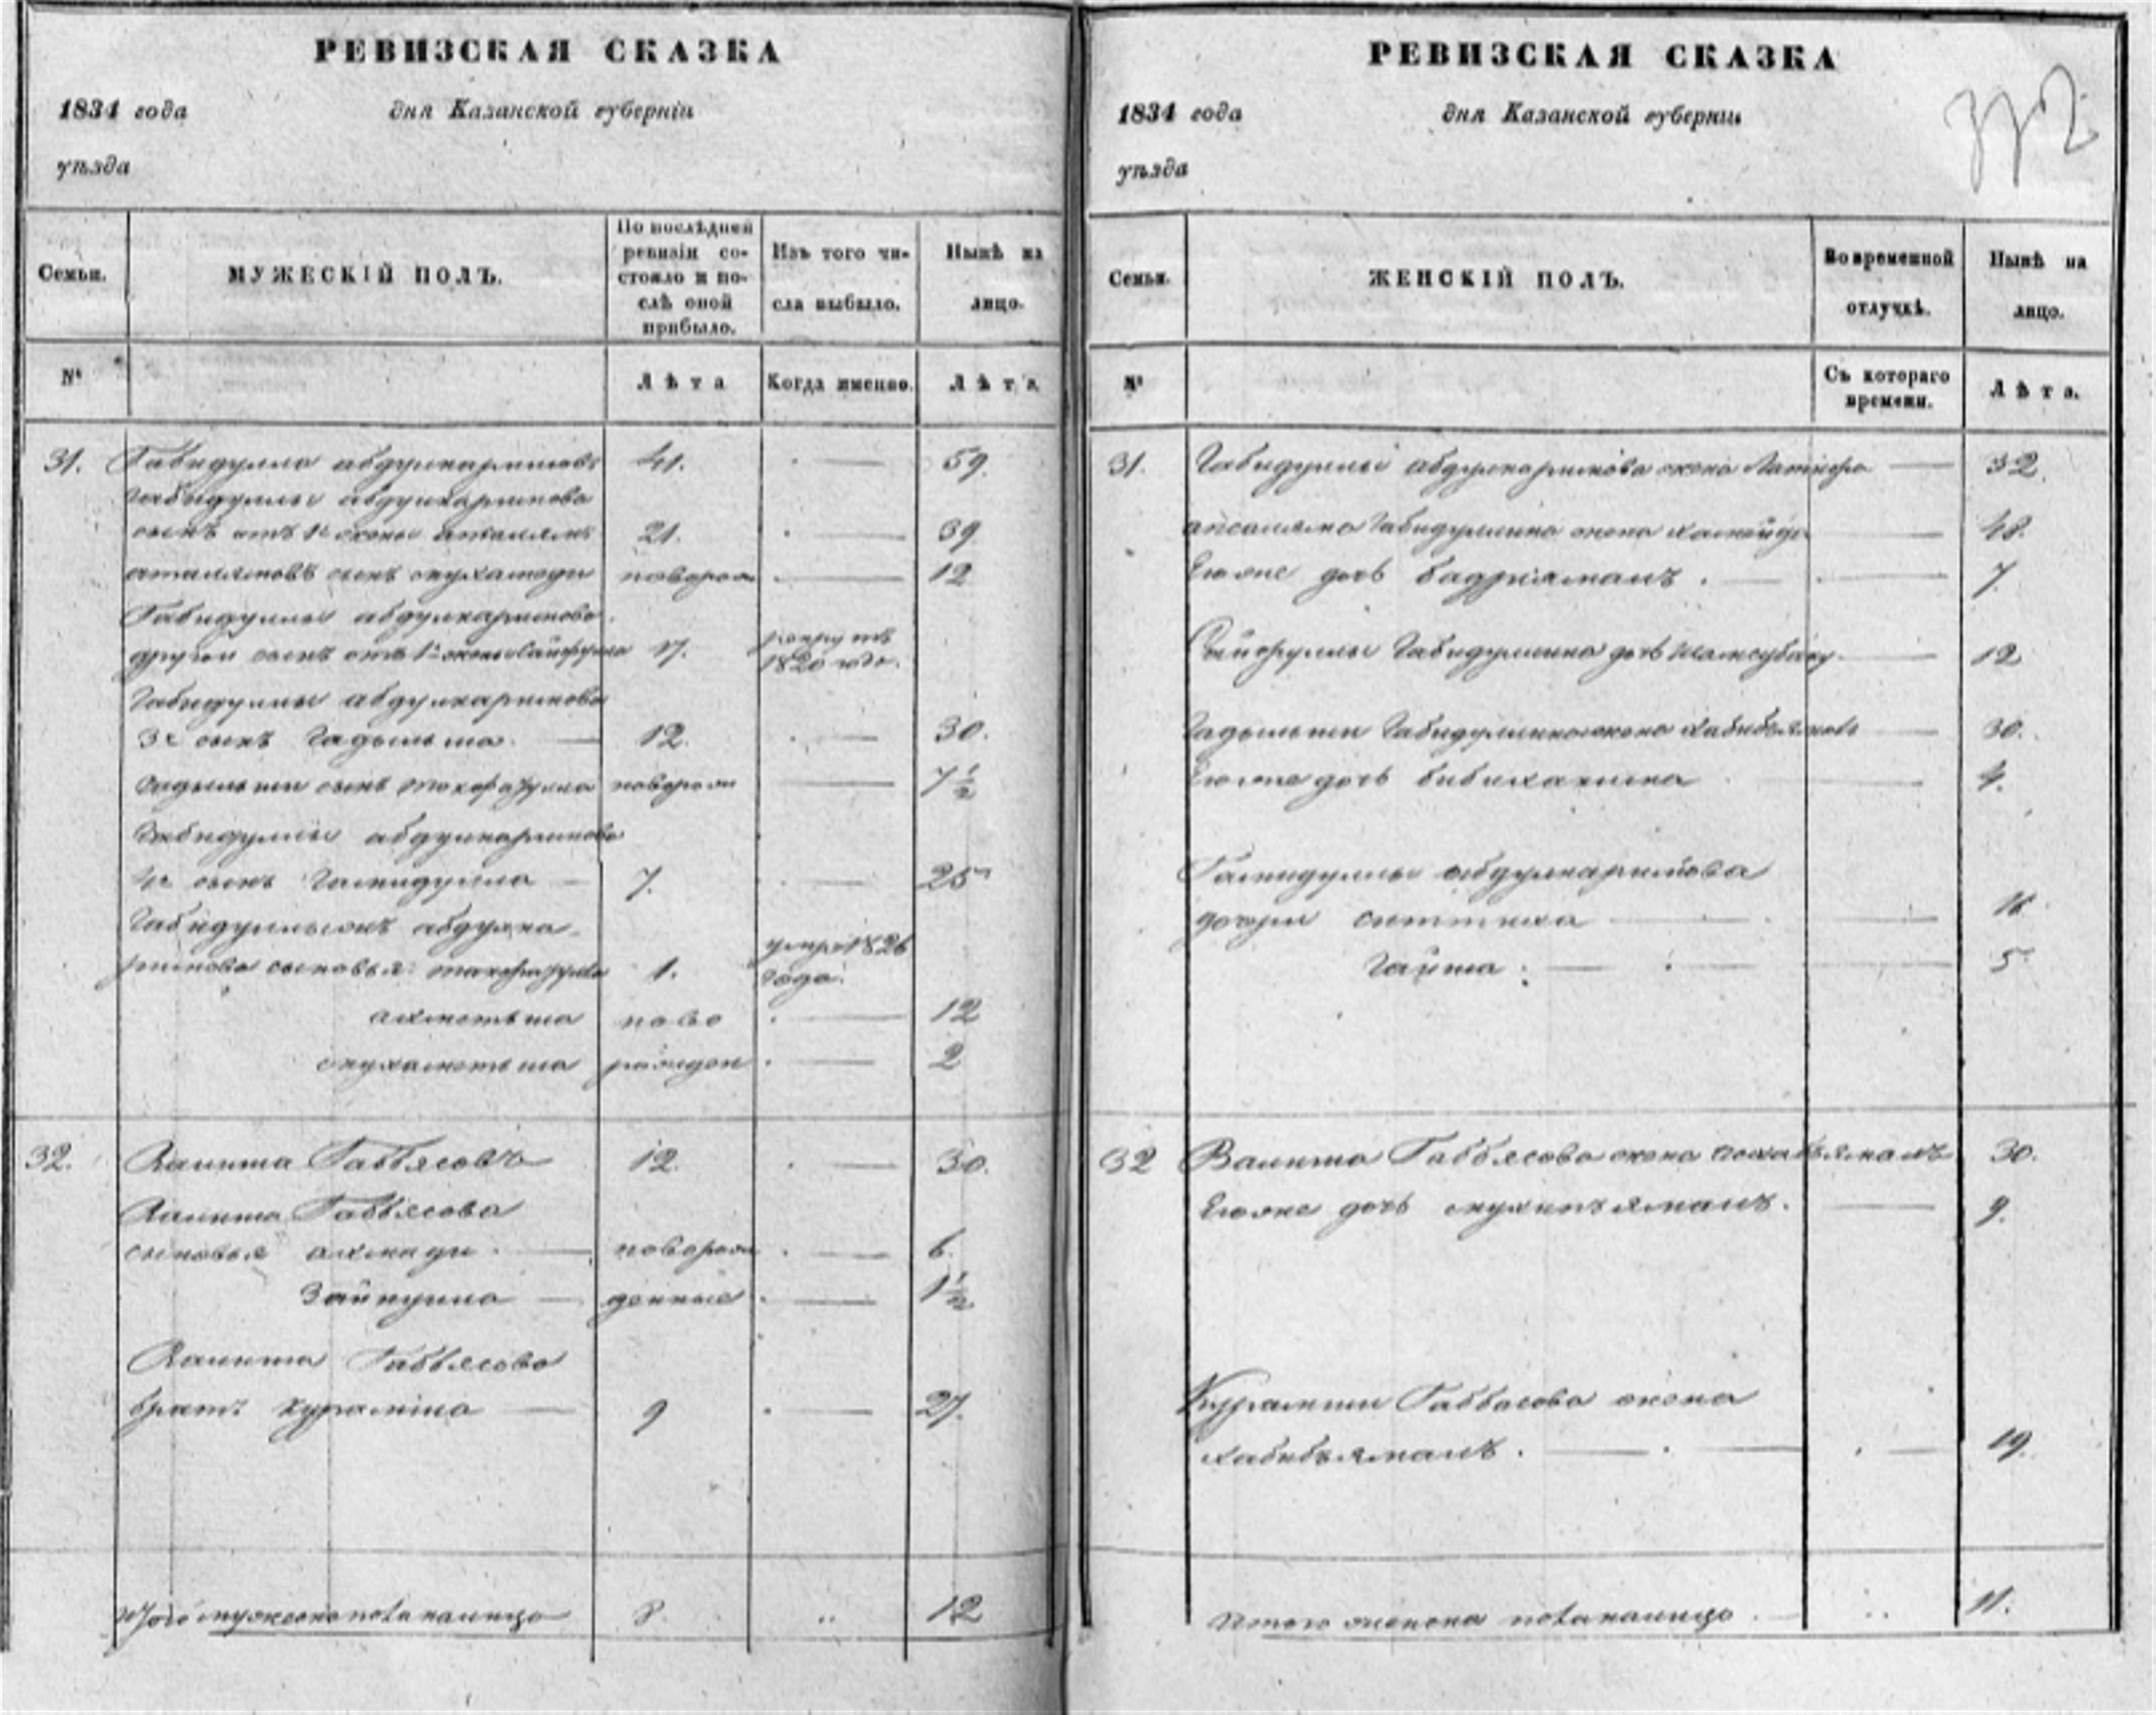 РЕВИЗСКАЯ СКАЗКА
1834 года дня Казанской губерніи
уѣзда
Семьи.
МУЖЕСКІЙ ПОЛЪ.
По послѣдней ревизіи состояло и послѣ оной прибыло.
Изъ того числа выбыло.
Нынѣ на лицо.
№
Лѣта
Когда именно.
Лѣта
31. Габидулла абдулкаримовъ 41. 59.
Габидуллы абдулкаримова
сынъ отъ 1й жены 21. 39
сынъ новорож 12
Габидуллы абдулкаримова
другой сынъ отъ 1й жены Сайфулла 17. рекрутъ 1820 года.
Габидуллы абдулкаримова
3й сынъ Гадыльша 12. 30.
Гадыльши сынъ новорож 7 1/2
Габидуллы абдулкаримова
4й сынъ Гамидулла 7. 25
абдулка-
римова сыновья: 1. умре 1826 года.
ахметьша ново 12
мухаметьша рожден 2
32. Валиша Габбясовъ 12. 30.
Валиша Габбясова
сыновья ахмади новорож 6.
Зайнулла денные 1 1/2
Валиша Габбясова
братъ Курамша 9 27.
Итого мужеска пола налицо 8. 12
РЕВИЗСКАЯ СКАЗКА
372
1834 года дня Казанской губерніи
уѣзда
Семьи.
ЖЕНСКІЙ ПОЛЪ.
Во временной отлучкѣ.
Нынѣ на лицо.
№
Съ котораго времени.
Лѣта.
31. Габидуллы абдулкаримова жена 52.
Габидуллина жена 48.
Ево же дочь бадріямалъ. 7.
Сайфуллы Габидуллина дочь 12
Гадыльши Габидуллина жена 30.
Ево же дочь 4.
Гамидуллы абдулкаримова
дочери 5
32 Валиша Габбясова жена 30.
Ево же дочь 9.
Курамши Габбасова жена
хабибъямалъ. 19.
Итого женска пола налицо 11.